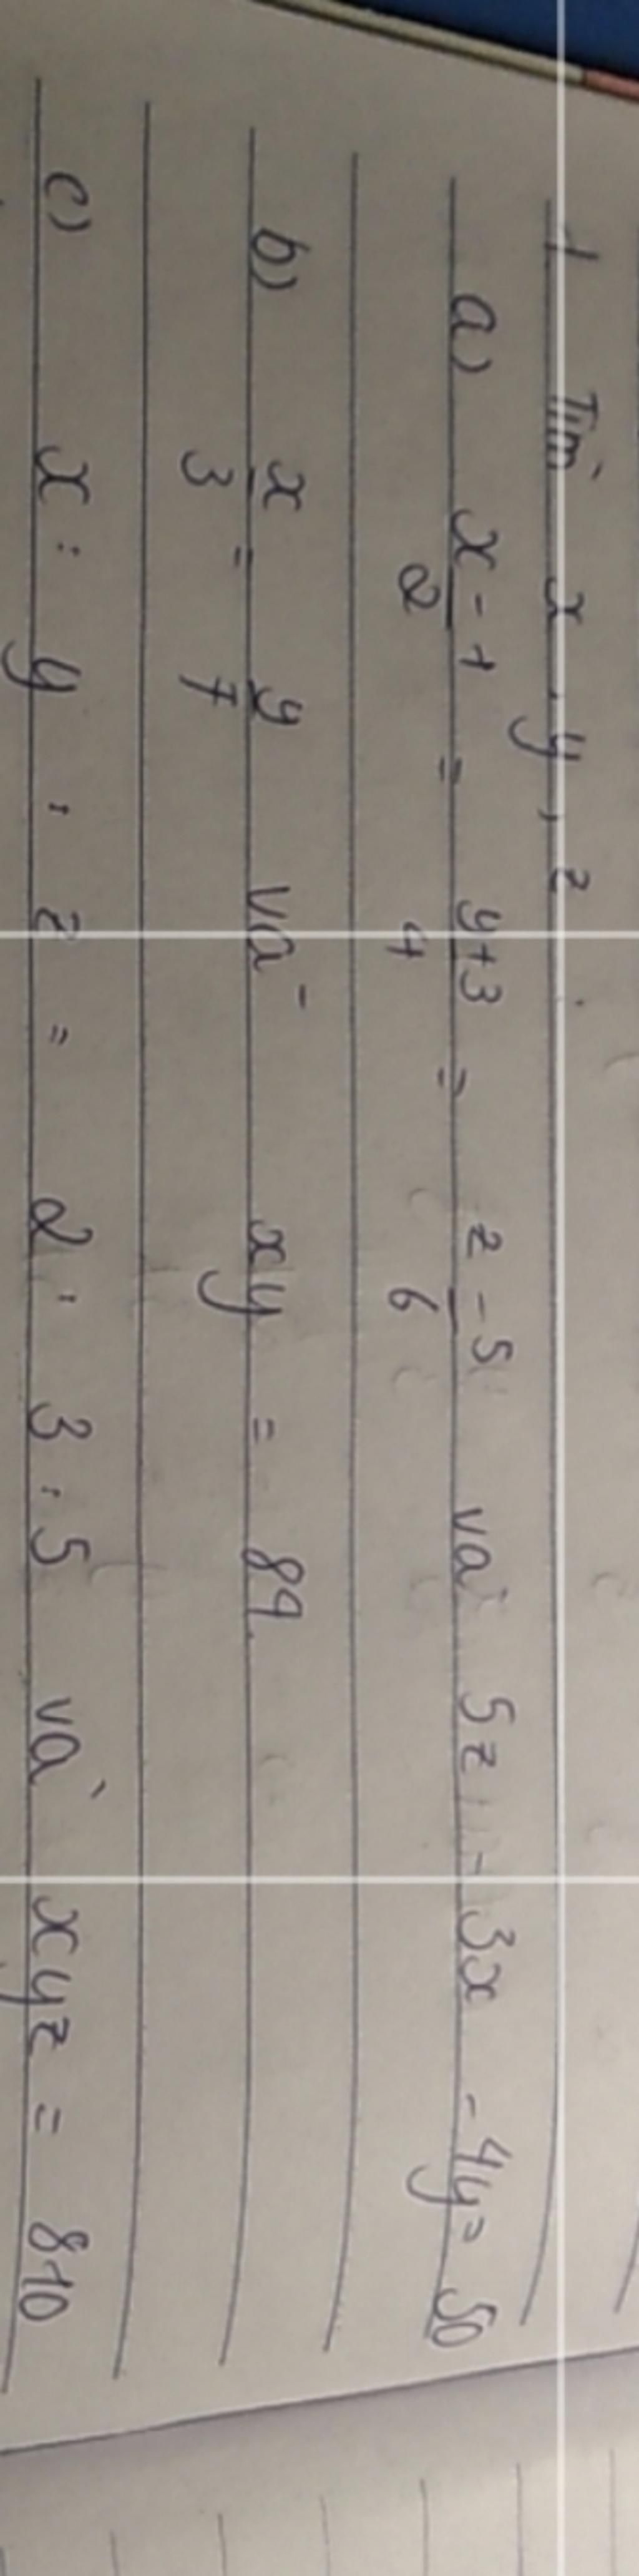 1. Tìm x, y, z
a) x-1/2 = y+3/4 = z-5/6 và 5z - 3x - 4y = 50
b) x/3 = y/7 và xy = 84
c) x : y : z = 2 : 3 : 5 và xyz = 810